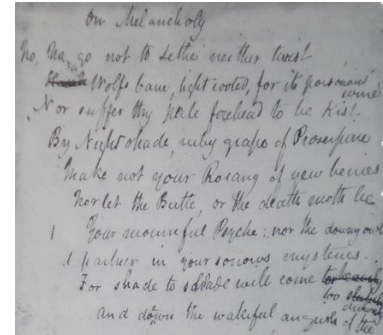 On Melancholy
No, No, go not to Lethe neither twist
Wolfs bane, tight rooted, for its poisonous wine
Nor suffer thy pale forehead to be kist
By Nightshade, ruby grape of Proserpine
Make not your Rosary of yew berries
Nor let the Beetle, or the death moth be
Your mournful Psyche; nor the downy owl
A partner in your sorrows mysteries
For shade to shade will come too
drowsily
And drown the wakeful anguish of the